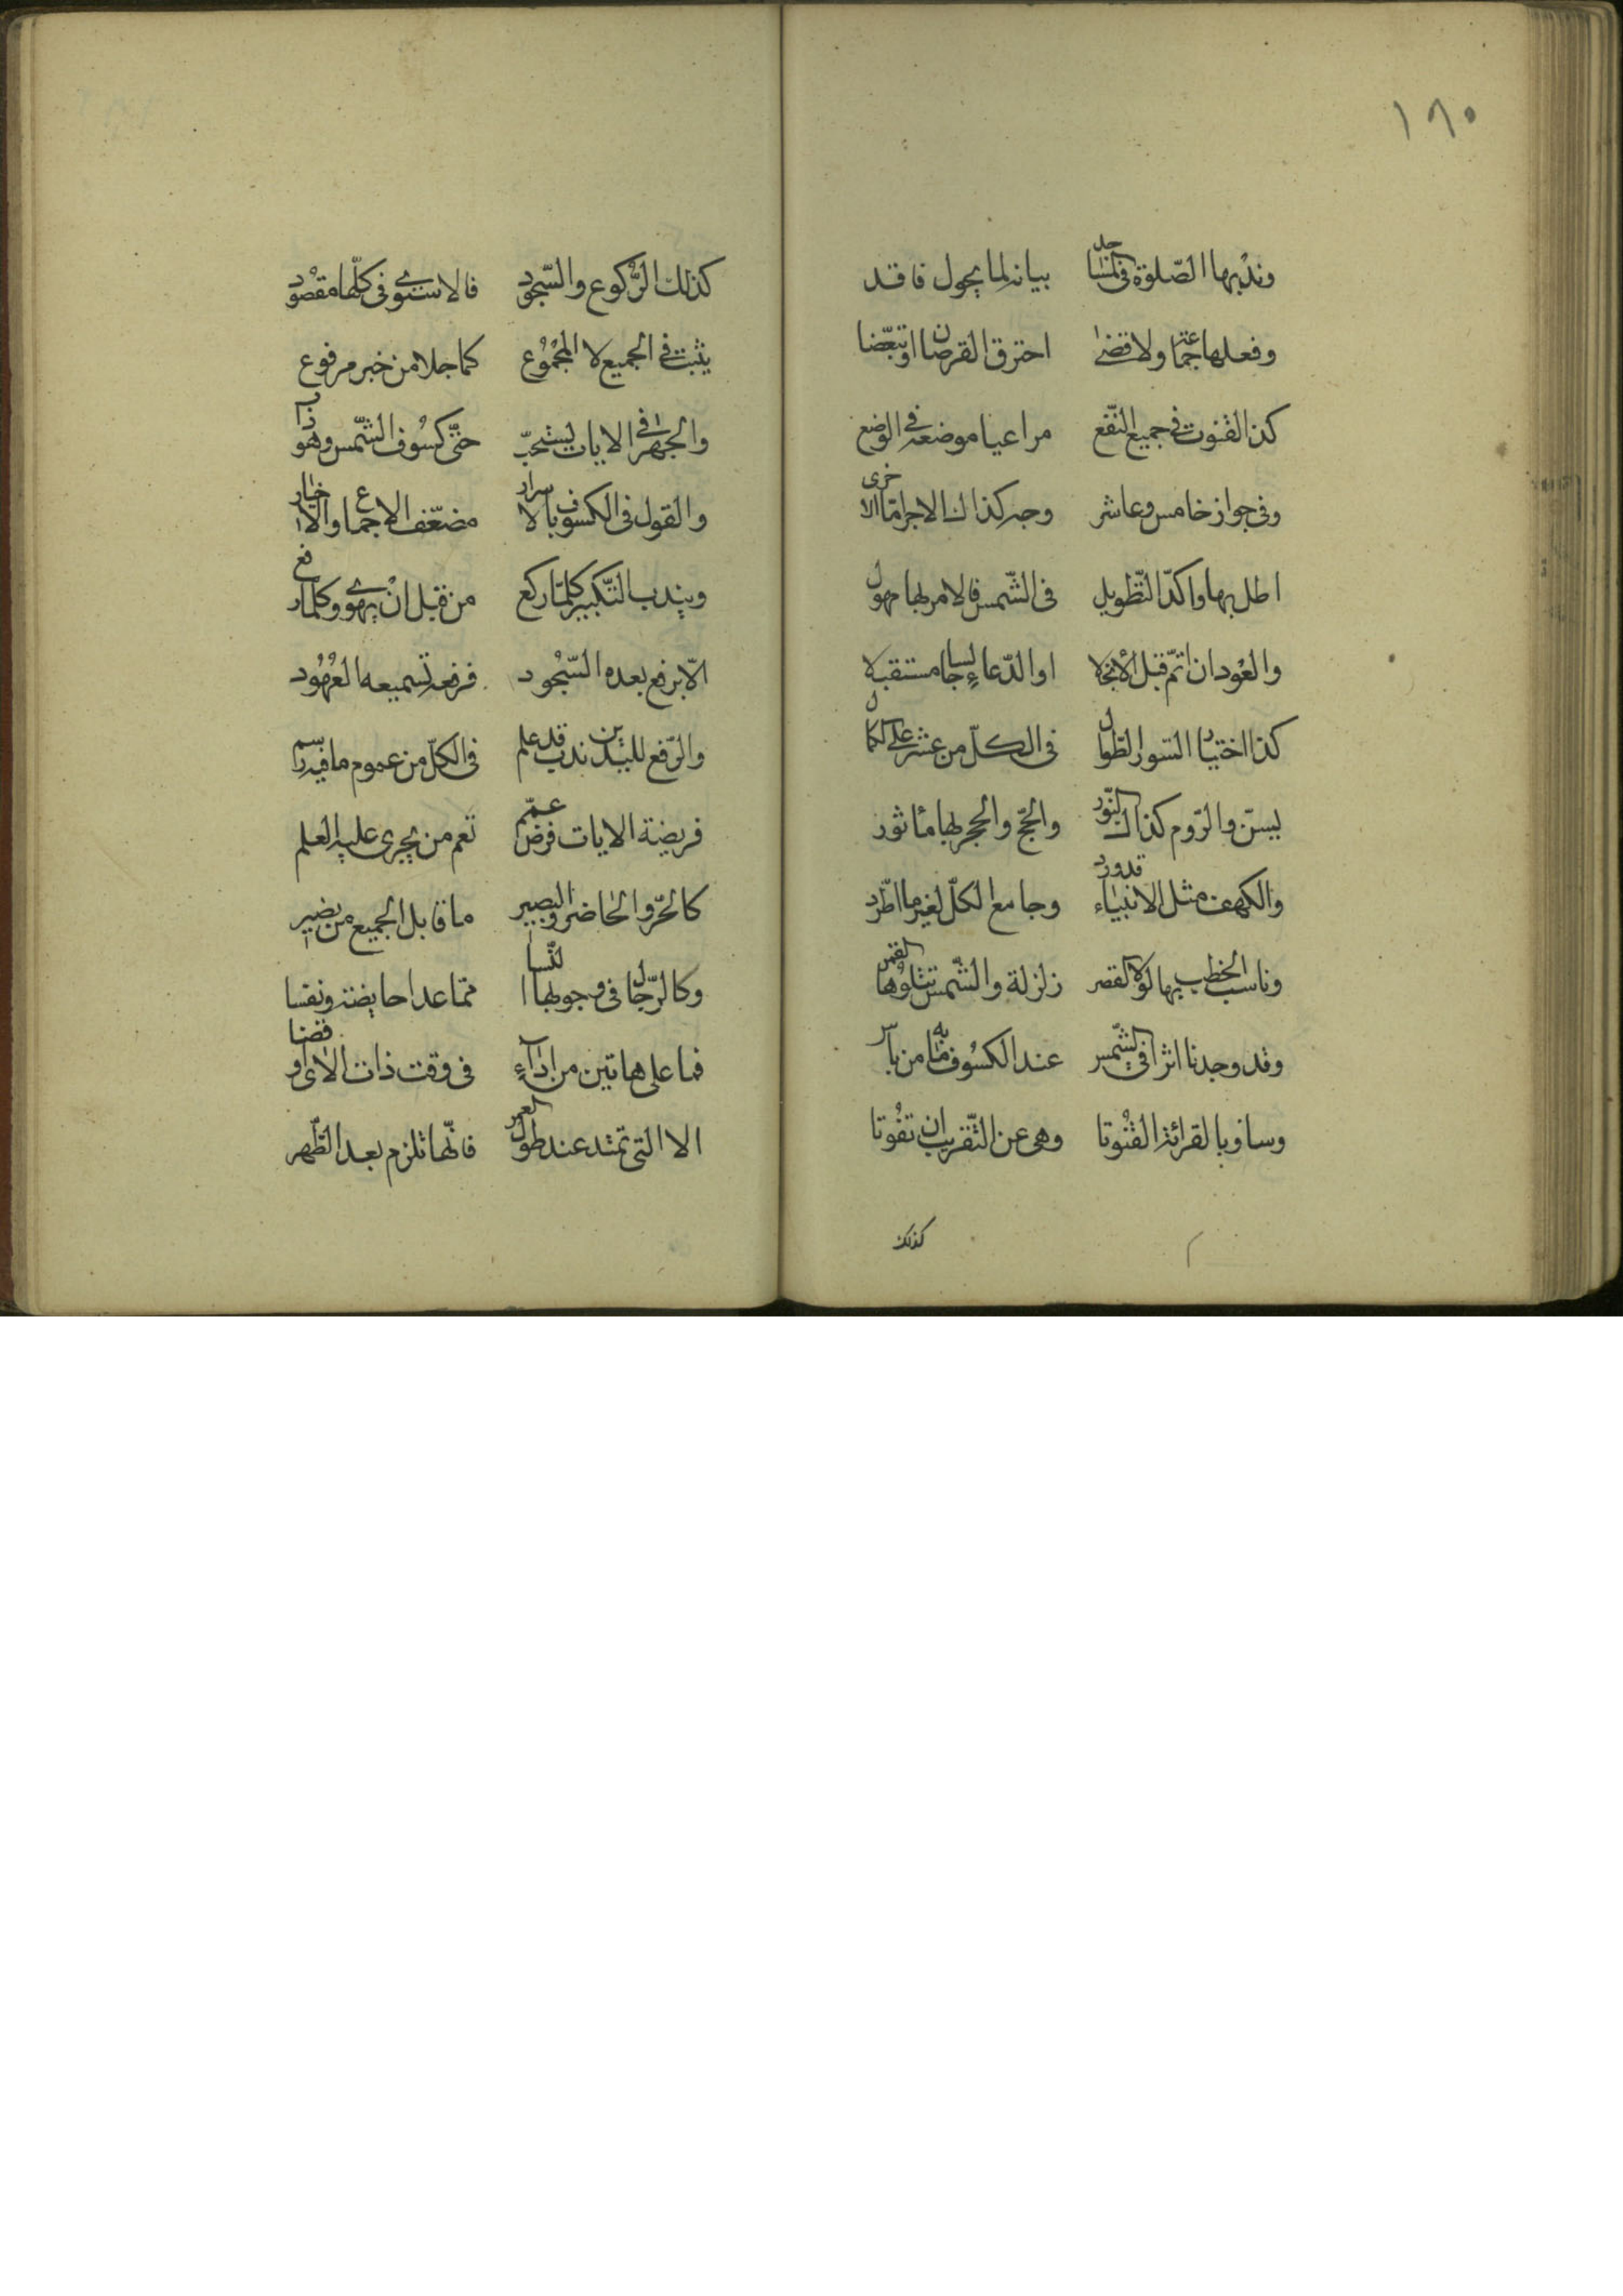 ١٨٠
وندبها الصّلوة فى المساجد بيانه لما يحول فاقد
وفعلها جماعة ولا قضى احترق القرصان او تبعّضا
كذا القنوت فى جميع النّفع مراعيا موضعه فى الوضع
وفى جواز خامس وعاشر وجه كذاك الاجرا
اطل بها واكّد التّطويل فى الشّمس فالامر لها مهول
والعود ان اتمّ قبل الانجلا او الدّعاء جالسا مستقبلا
كذا اختيار السور الطّوال فى الكلّ من عشر على الكمال
يسنّ والرّوم كذاك النّور والحجّ والحجر لها مأثور
والكهف مثل الانبياء قد ورد وجامع الكلّ لغير ما اطّرد
وناسب الخطب بها لولا القصر زلزلة والشّمس تتلوها القمر
وقد وجدنا اثرا فى الشّمس عند الكسوف ما به من باس
وساو بالقرائة القنوتا وهى عن التّقريب ان تفوتا
كذلك
كذلك الرّكوع والسّجود فالاستوى فى كلّها مقصود
يثبت فى الجميع لا المجموع كما جلا من خبر مرفوع
والجهر فى الايات يستحبّ حتّى كسوف الشّمس وهو
والقول فى الكسوف بالاسرار مضعّف الاجماع والاخبار
ويندب التّكبير كلّما ركع من قبل ان يهوى وكلّما رفع
الّا برفع بعده السّجود فرفعه تسميعه المعهود
والرّفع لليدين ندب قد علم فى الكلّ من عموم ما فيه رسم
فريضة الايات فرض عمّم تعم من يجرى عليه القلم
كالحرّ والحاضر والبصير ما قابل الجميع من نضير
وكالرّجال فى وجوبها النّسا ممّا عدا حايضة ونفسا
فما على هاتين من اداء فى وقت ذات الاى او قضا
الا التى تمتد عند طول العمر فانّها تلزم بعد الطّهر